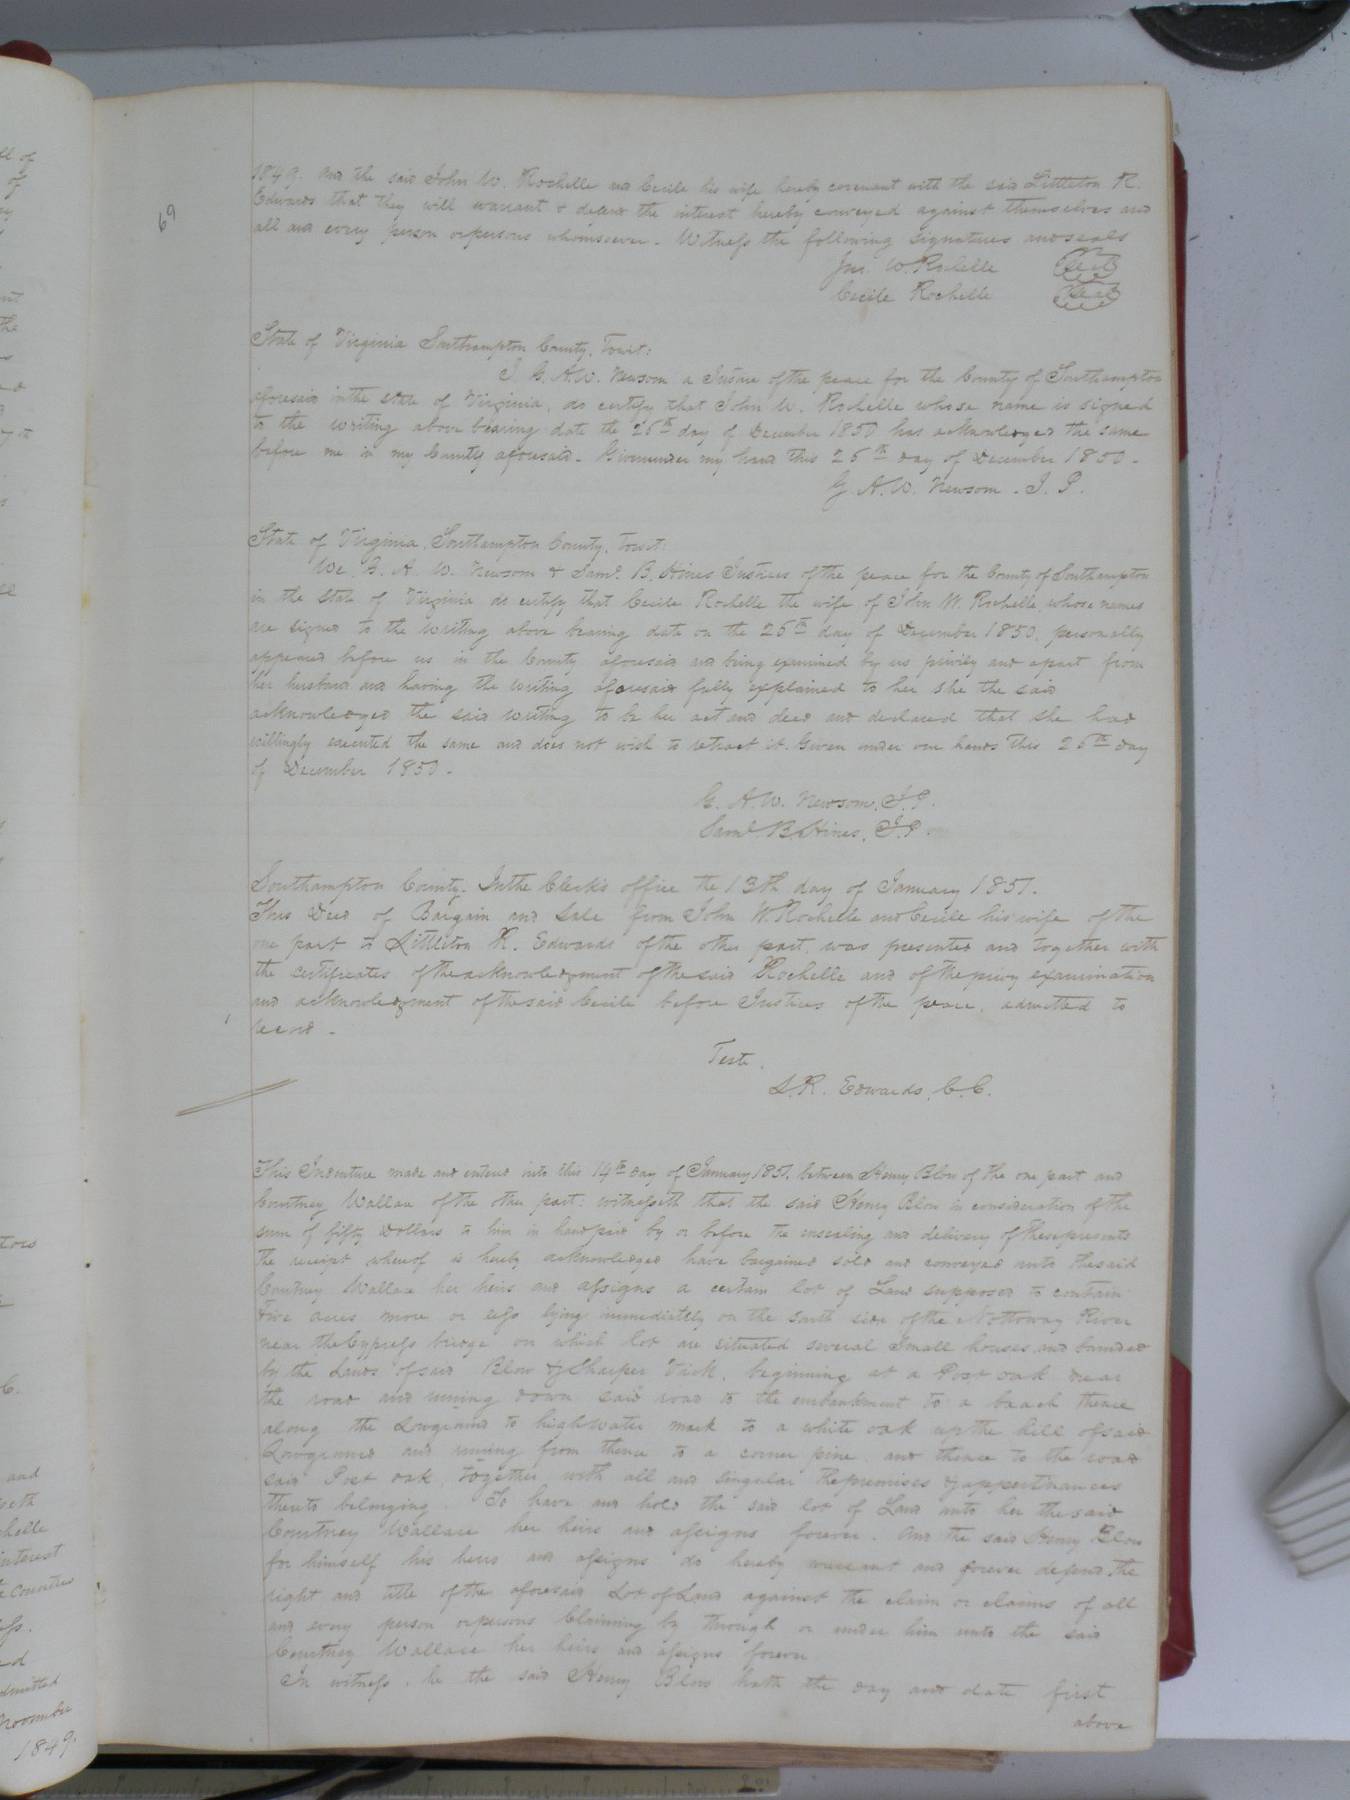 69
1849. And the said John W. Rochelle and Cecile his wife hereby covenant with the said Littleton R.
Edwards that they will warrant & defend the interest hereby conveyed against themselves and
all and every person or persons whomsoever. Witness the following signatures and seals
Jno. W. Rochelle Seal
Cecile Rochelle Seal
State of Virginia Southampton County, Towit:
I G. A. W. Newsom a Justice of the peace for the County of Southampton
aforesaid in the state of Virginia, do certify that John W. Rochelle whose name is signed
to the writing above bearing date the 26th day of December 1850 has acknowledged the same
before me in my County aforesaid. Given under my hand this 26th day of December 1850.
G. A. W. Newsom. J. P.
State of Virginia, Southampton County, Towit:
We, G. A. W. Newsom & Saml. B. Hines Justices of the peace for the County of Southampton
in the State of Virginia do certify that Cecile Rochelle the wife of John W. Rochelle, whose names
are signed to the writing above bearing date on the 26th day of December 1850, personally
appeared before us in the County aforesaid and being examined by us privily and apart from
her husband and having the writing aforesaid fully explained to her she the said
acknowledged the said writing to be her act and deed and declared that she had
willingly executed the same and does not wish to retract it. Given under our hands this 26th day
of December 1850.
G. A. W. Newsom, J.P.
Saml. B. Hines, J.P.
Southampton County. In the Clerk's office the 13th day of January 1851.
This Deed of Bargain and Sale from John W. Rochelle and Cecile his wife of the
one part to Littleton R. Edwards of the other part, was presented and together with
the certificates of the acknowledgment of the said Rochelle and of the privy examination
and acknowledgment of the said Cecile before Justices of the peace, admitted to
record.
Teste,
L. R. Edwards, C. C.
This Indenture made and entered into this 14th day of January 1851, between Henry Blow of the one part and
Courtney Wallace of the other part: witnesseth that the said Henry Blow in consideration of the
sum of fifty Dollars to him in hand paid by or before the ensealing and delivery of these presents
the receipt whereof is hereby acknowledged have bargained sold and conveyed unto the said
Courtney Wallace her heirs and assigns a certain lot of Land supposed to contain
five acres more or less lying immediately on the South side of the Nottoway River
near the Cypress bridge on which lot are situated several Small houses, and bounded
by the Lands of said Blow & Sharper Vick, beginning at a Post oak near
the road and running down said road to the embankment to a beach thence
along the Lowground to high water mark to a white oak up the hill of said
Lowground and running from thence to a corner pine, and thence to the road
said Post oak, together with all and singular the premises & appertnances
thereto belonging. To have and hold the said lot of Land unto her the said
Courtney Wallace her heirs and assigns forever. And the said Henry Blow
for himself his heirs and assigns do hereby warrant and forever defend, the
right and title of the aforesaid Lot of Land against the claim or claims of all
and every person or persons Claiming by through or under him unto the said
Courtney Wallace her heirs and assigns forever
In witness, he the said Henry Blow hath the day and date first
above